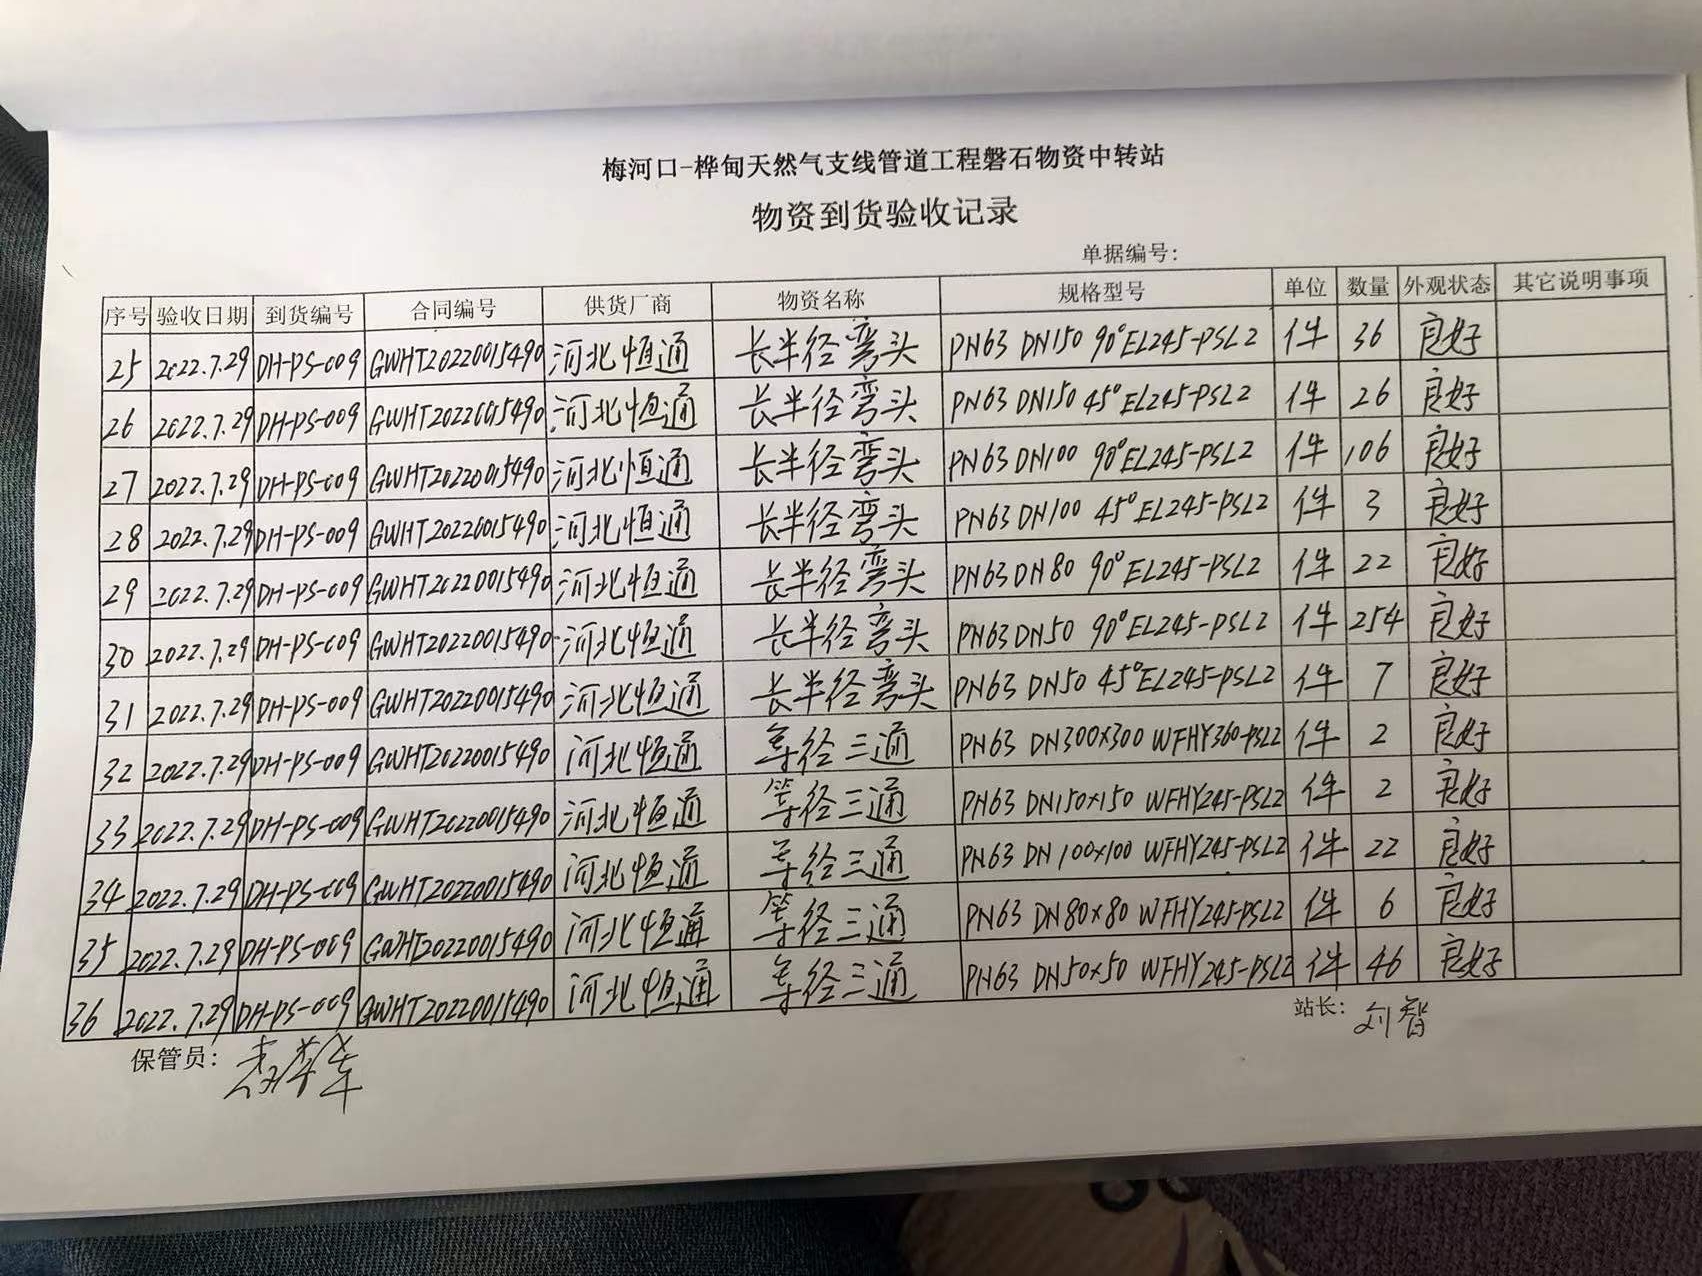 梅河口-桦甸天然气支线管道工程磐石物资中转站
物资到货验收记录
单据编号:
序号 验收日期 到货编号 合同编号 供货厂商 物资名称 规格型号 单位 数量 外观状态 其它说明事项
25 2022.7.29 DH-PS-009 GWHT20220015490 河北恒通 长半径弯头 PN63 DN150 90°EL245-PSL2 件 36 良好
26 2022.7.29 DH-PS-009 GWHT20220015490 河北恒通 长半径弯头 PN63 DN150 45°EL245-PSL2 件 26 良好
27 2022.7.29 DH-PS-009 GWHT20220015490 河北恒通 长半径弯头 PN63 DN100 90°EL245-PSL2 件 106 良好
28 2022.7.29 DH-PS-009 GWHT20220015490 河北恒通 长半径弯头 PN63 DN100 45°EL245-PSL2 件 3 良好
29 2022.7.29 DH-PS-009 GWHT20220015490 河北恒通 长半径弯头 PN63 DN80 90°EL245-PSL2 件 22 良好
30 2022.7.29 DH-PS-009 GWHT20220015490 河北恒通 长半径弯头 PN63 DN50 90°EL245-PSL2 件 254 良好
31 2022.7.29 DH-PS-009 GWHT20220015490 河北恒通 长半径弯头 PN63 DN50 45°EL245-PSL2 件 7 良好
32 2022.7.29 DH-PS-009 GWHT20220015490 河北恒通 等径三通 PN63 DN300×300 WFHY360-PSL2 件 2 良好
33 2022.7.29 DH-PS-009 GWHT20220015490 河北恒通 等径三通 PN63 DN150×150 WFHY245-PSL2 件 2 良好
34 2022.7.29 DH-PS-009 GWHT20220015490 河北恒通 等径三通 PN63 DN100×100 WFHY245-PSL2 件 22 良好
35 2022.7.29 DH-PS-009 GWHT20220015490 河北恒通 等径三通 PN63 DN80×80 WFHY245-PSL2 件 6 良好
36 2022.7.29 DH-PS-009 GWHT20220015490 河北恒通 等径三通 PN63 DN50×50 WFHY245-PSL2 件 46 良好
保管员: 站长: 刘智